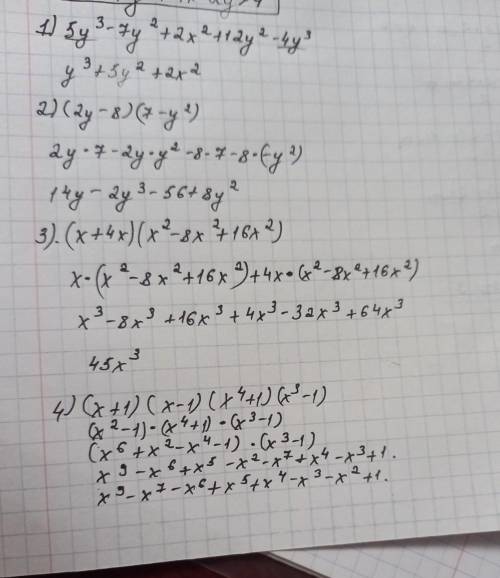 1) 5y³-7y²+2x²+12y²-4y³
y³+5y²+2x²
2) (2y-8)(7-y²)
2y·7-2y·y²-8·7-8·(-y²)
14y-2y³-56+8y²
3). (x+4x)(x²-8x²+16x²)
x·(x²-8x²+16x²)+4x·(x²-8x²+16x²)
x³-8x³+16x³+4x³-32x³+64x³
45x³
4) (x+1)(x-1)(x⁴+1)(x³-1)
(x²-1)·(x⁴+1)·(x³-1)
(x⁶+x²-x⁴-1)·(x³-1)
x⁹-x⁶+x⁵-x²-x⁷+x⁴-x³+1.
x⁹-x⁷-x⁶+x⁵+x⁴-x³-x²+1.